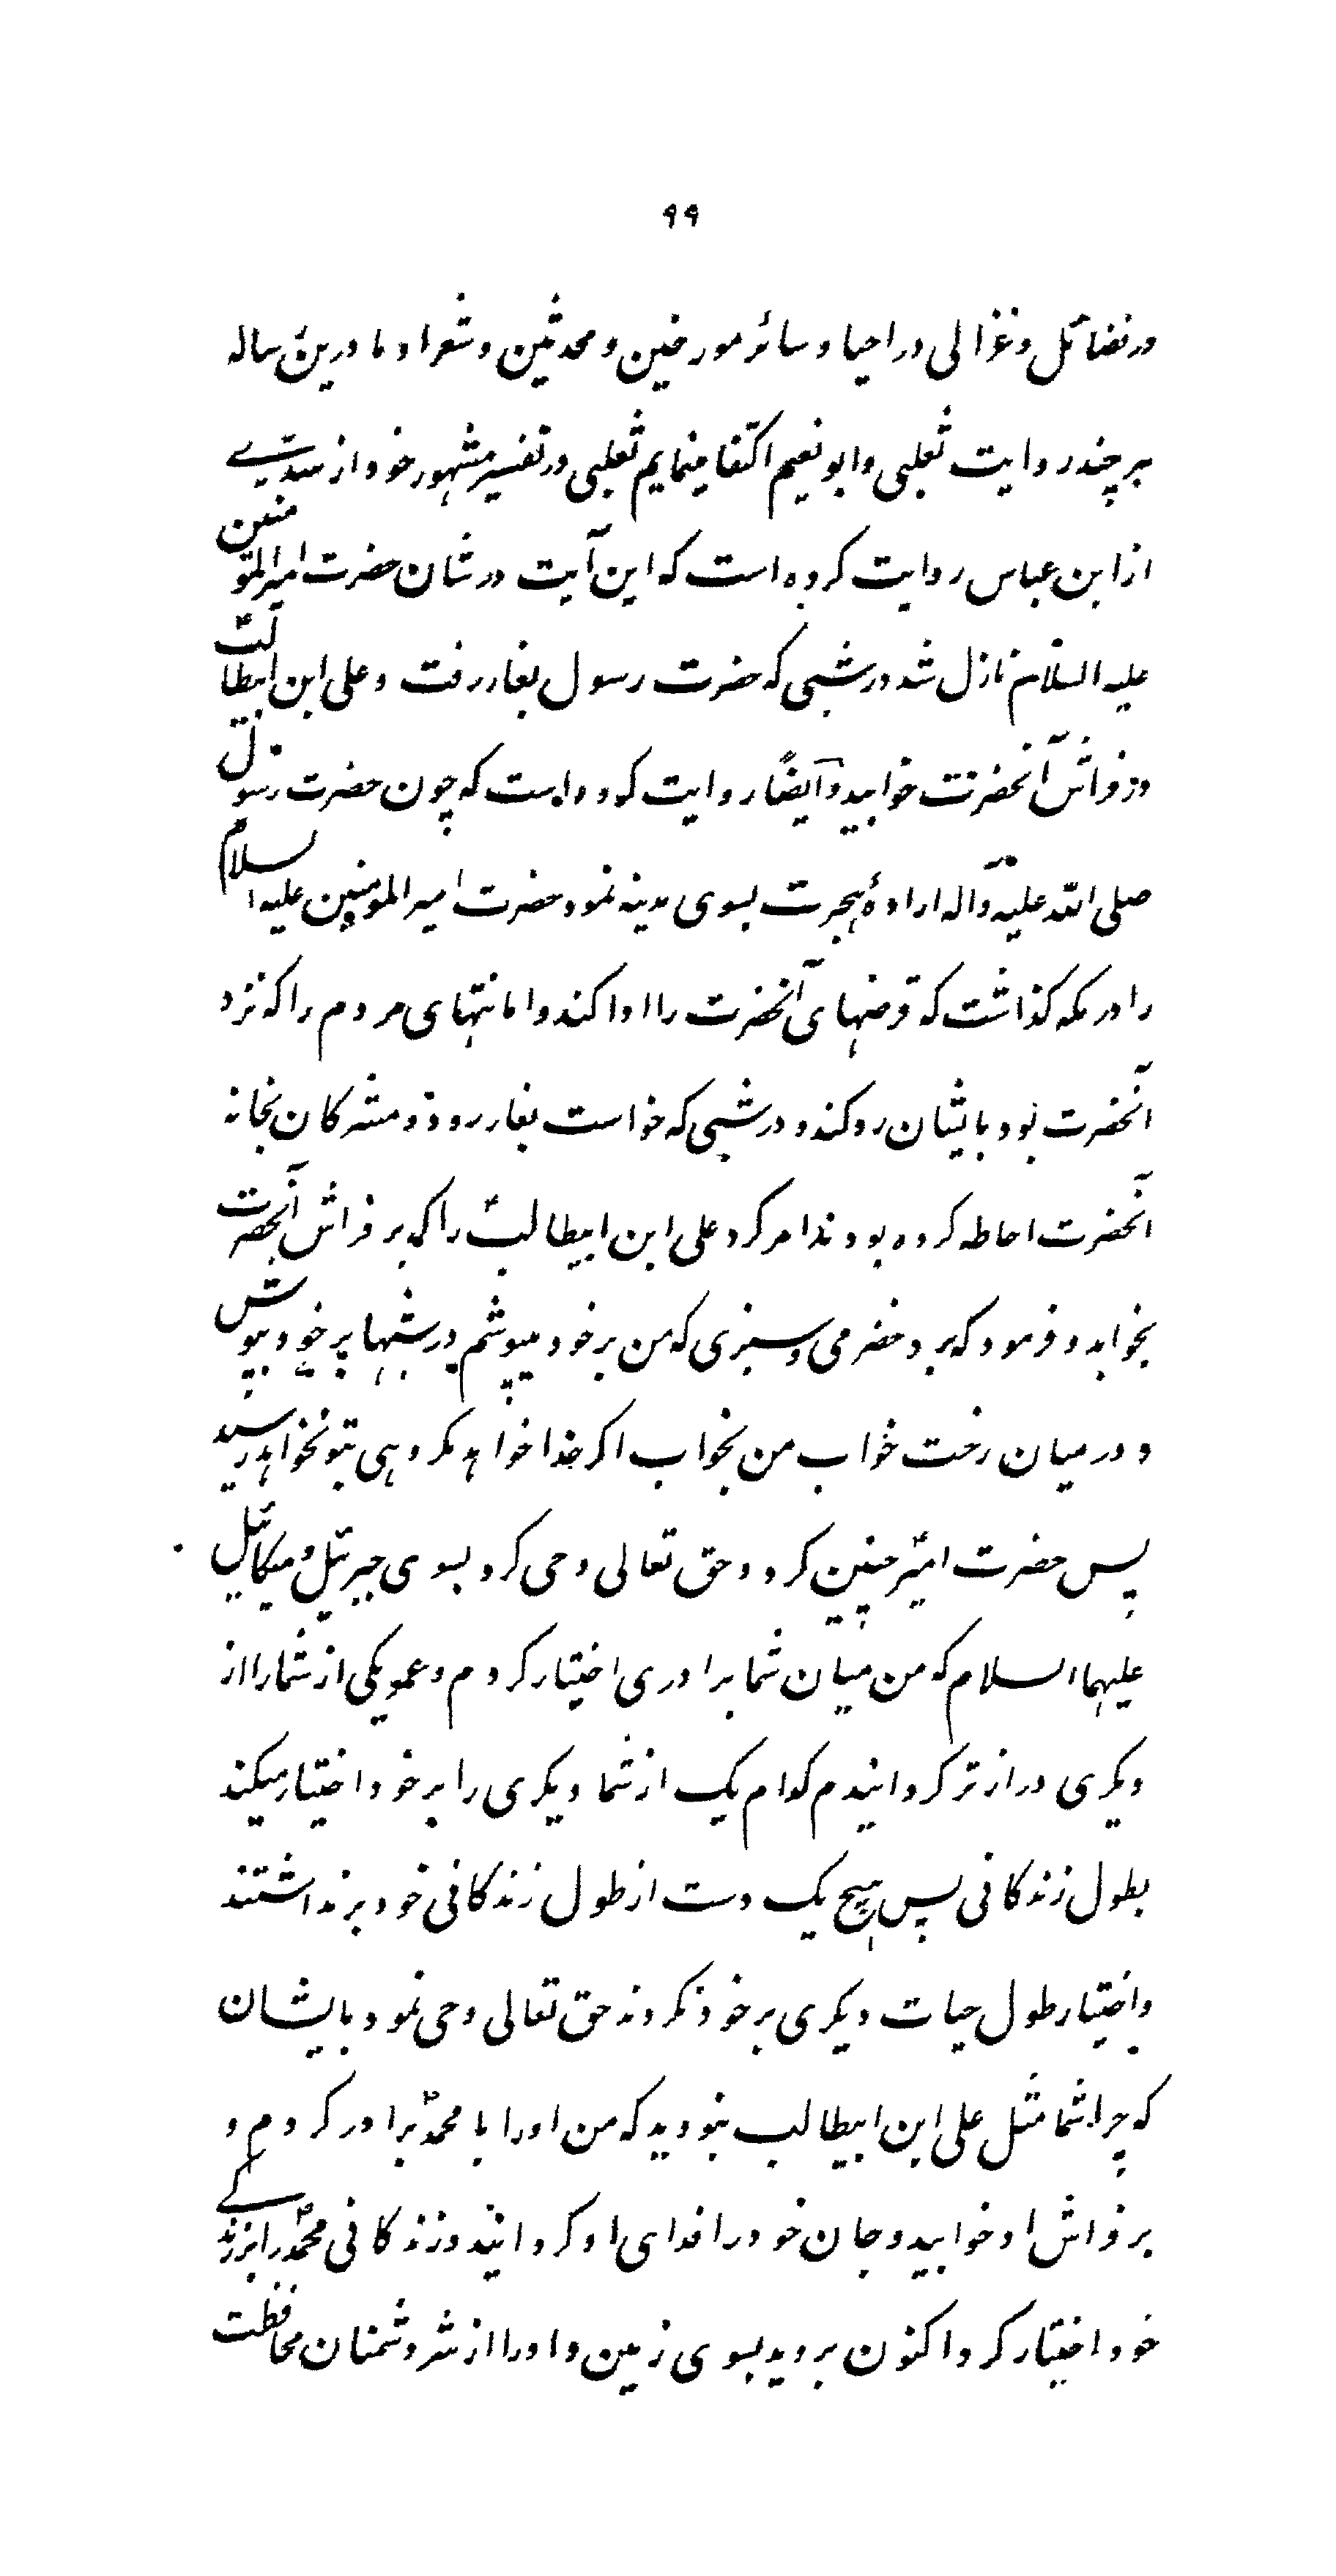 ۹۹
در فضائل و غزالی در احیا و سائر مورخین و محدثین و شعرا و ما درین رساله
بر چند روایت ثعلبی و ابو نعیم اکتفا مینمایم ثعلبی در تفسیر مشهور خود از سدی
از ابن عباس روایت کرده است که این آیت در شان حضرت امیرالمؤمنین
علیه السلام نازل شد در شبی که حضرت رسول بغار رفت و علی ابن ابیطالبؑ
در فراش آنحضرت خوابید و ایضًا روایت کرده است که چون حضرت رسول
صلی الله علیه وآله ارادهٔ هجرت بسوی مدینه نمود حضرت امیر المومنین علیه السلام
را در مکه گذاشت که قرضهای آنحضرت را ادا کند و امانتهای مردم را که نزد
آنحضرت بود بایشان رد کند و در شبی که خواست بغار رود و مشرکان بخانه
آنحضرت احاطه کرده بودند امر کرد علی ابن ابیطالبؑ را که بر فراش آنحضرت
بخوابد و فرمود که برد حضرمی سبزی که من بر خود میپوشم در شبها بر خود بپوش
و در میان رخت خواب من بخواب اگر خدا خواهد مکروهی بتو نخواهد رسید
پس حضرت امیرؑ چنین کرد و حق تعالی وحی کرد بسوی جبرئیل و میکائیل
علیهما السلام که من میان شما برادری اختیار کردم و عمر یکی از شما را از
دیگری دراز تر گردانیدم کدام یک از شما دیگری را بر خود اختیار میکند
بطول زندگانی پس هیچ یک دست از طول زندگانی خود بر نداشتند
و اختیار طول حیات دیگری بر خود نکردند حق تعالی وحی نمود بایشان
که چرا شما مثل علی ابن ابیطالب نبودید که من او را با محمدؐ برادر کردم و
بر فراش او خوابید و جان خود را فدای او گردانید و زندگانی محمدؐ را بر زندگے
خود اختیار کرد اکنون بروید بسوی زمین و او را از شر دشمنان محافظت